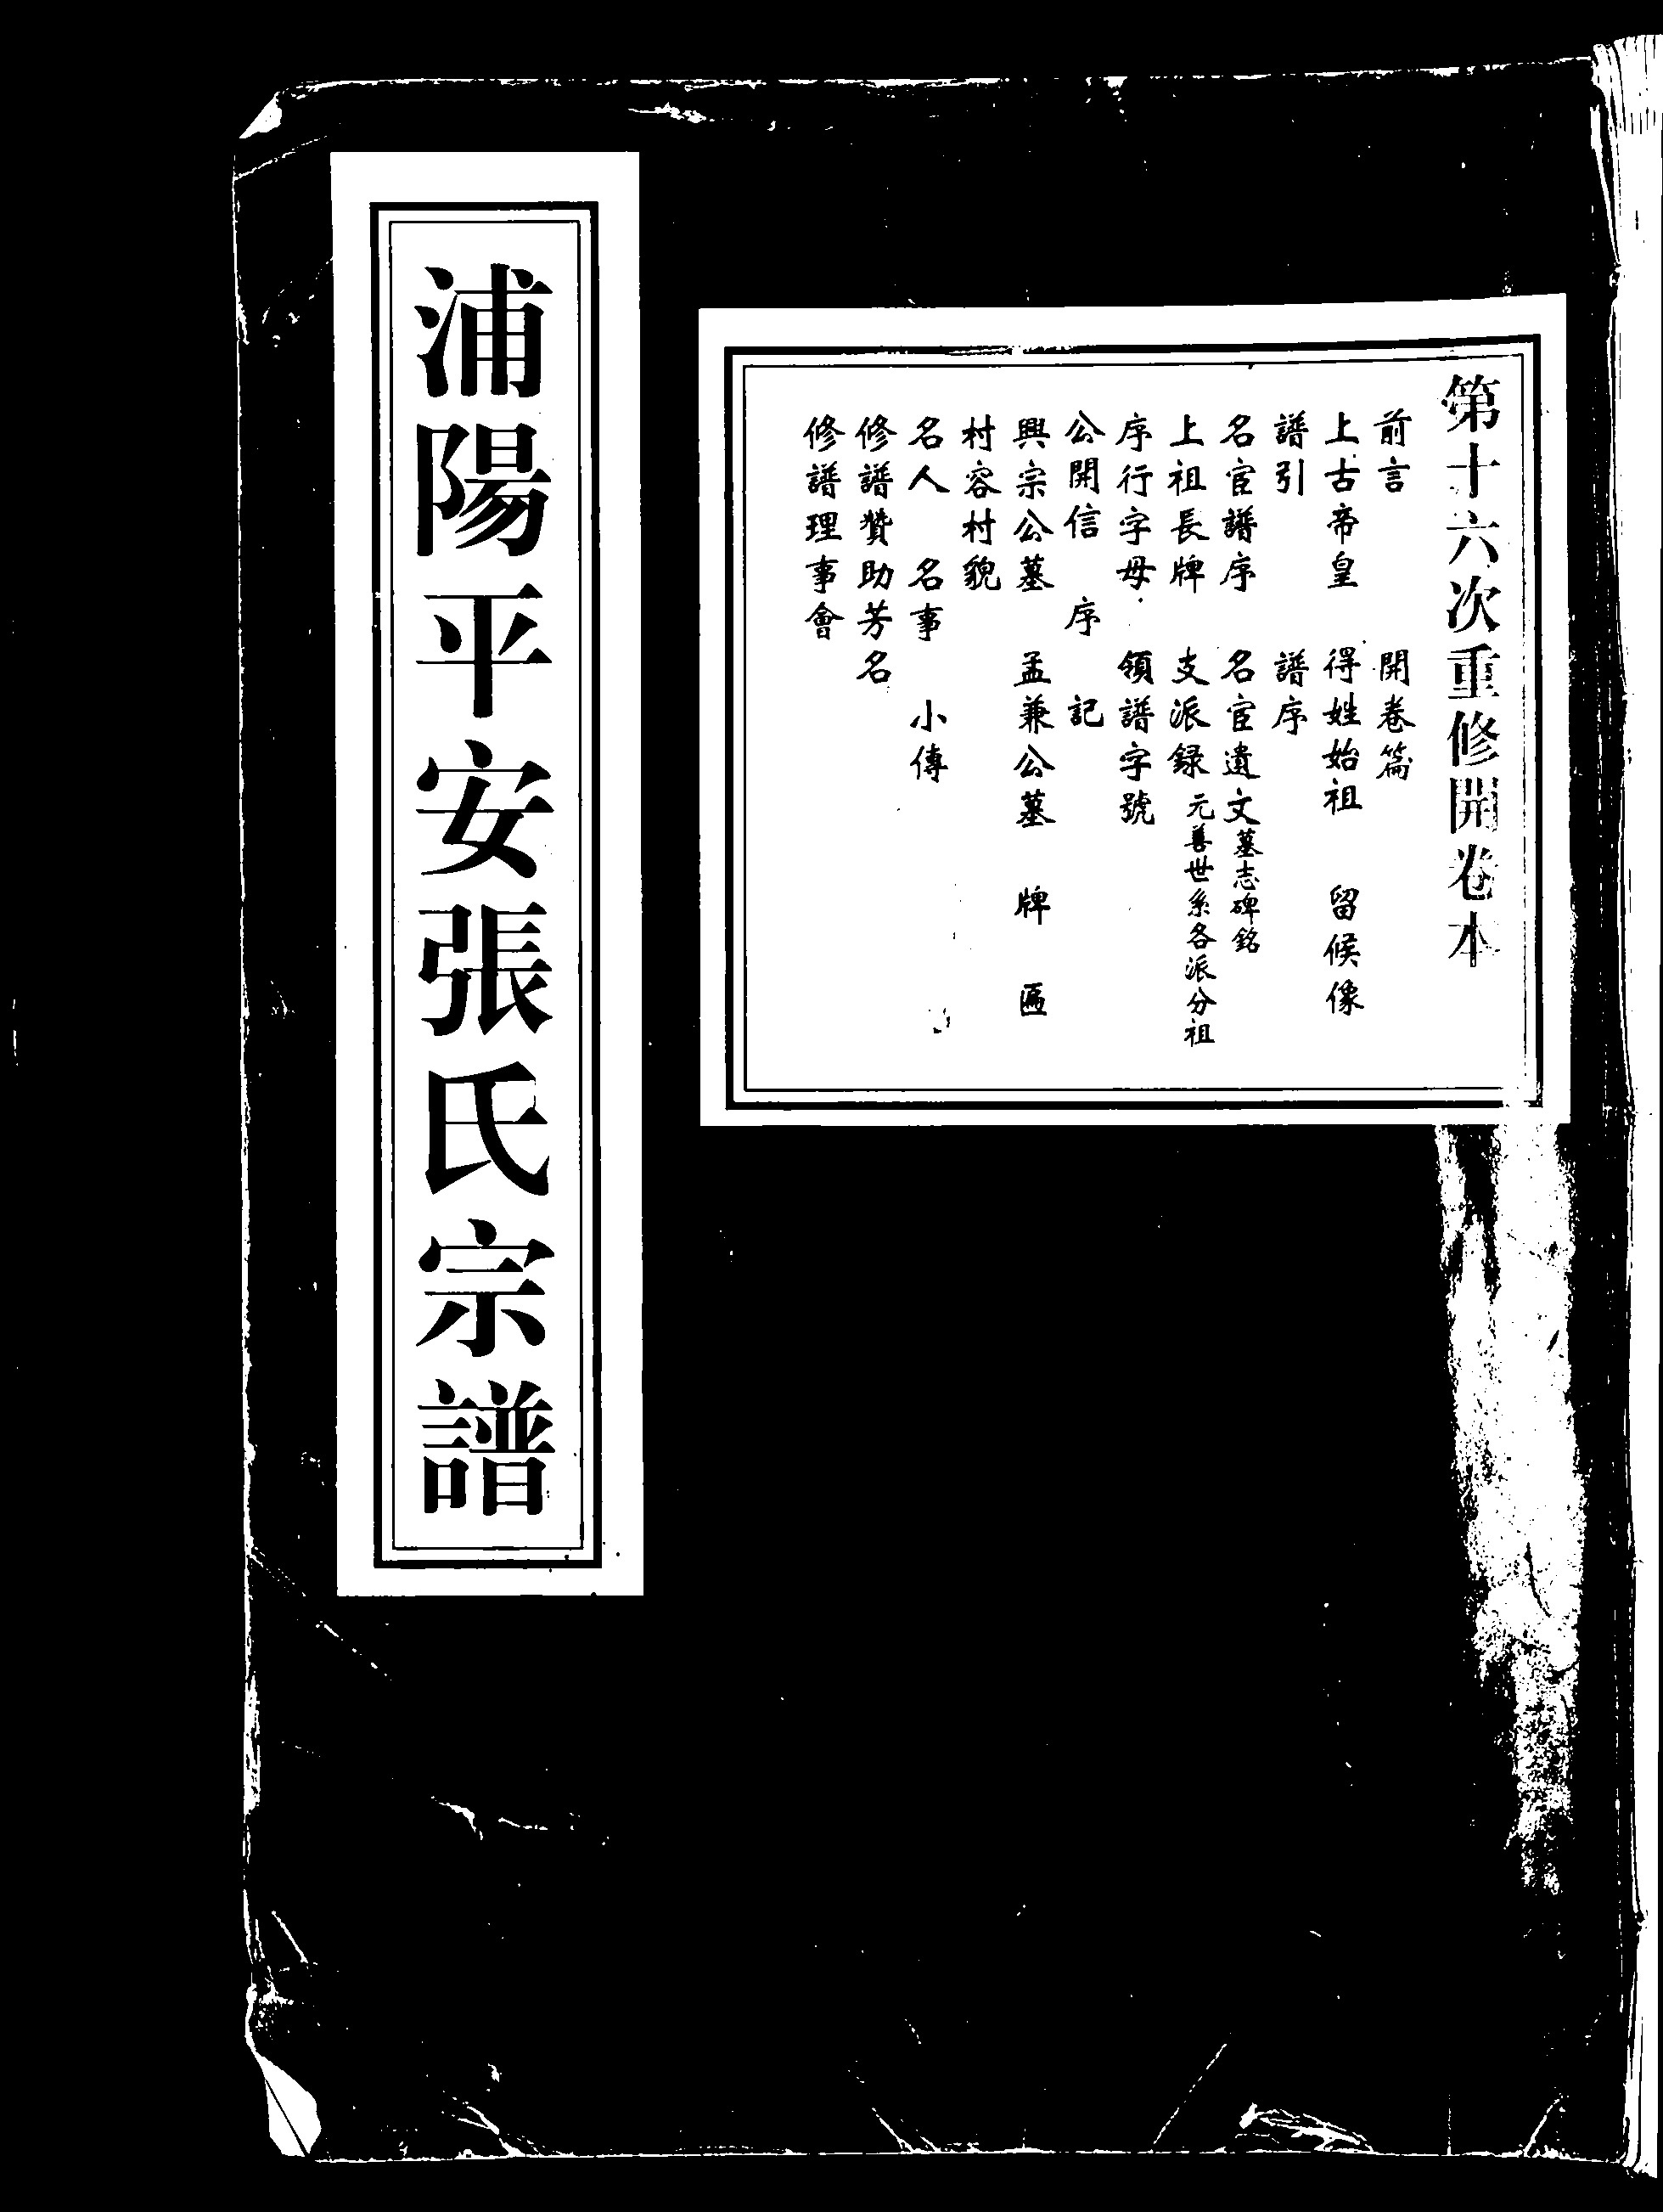 第十六次重修開卷本
前言　開卷篇
上古帝皇　得姓始祖　留候像
譜引　譜序
名宦譜序　名宦遺文墓志碑銘
上祖長牌　支派録元善世系各派分祖
序行字母　領譜字號
公開信　序　記
興宗公墓　孟兼公墓　牌　匾
村容村貌
名人　名事　小傳
修譜贊助芳名
修譜理事會
浦陽平安張氏宗譜